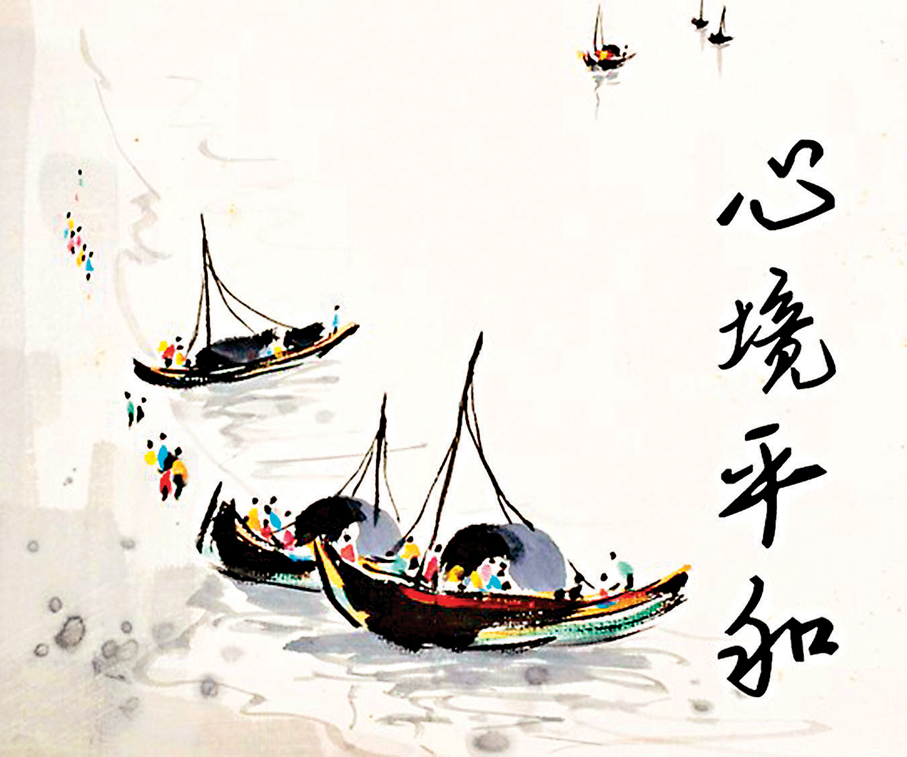 心境平和